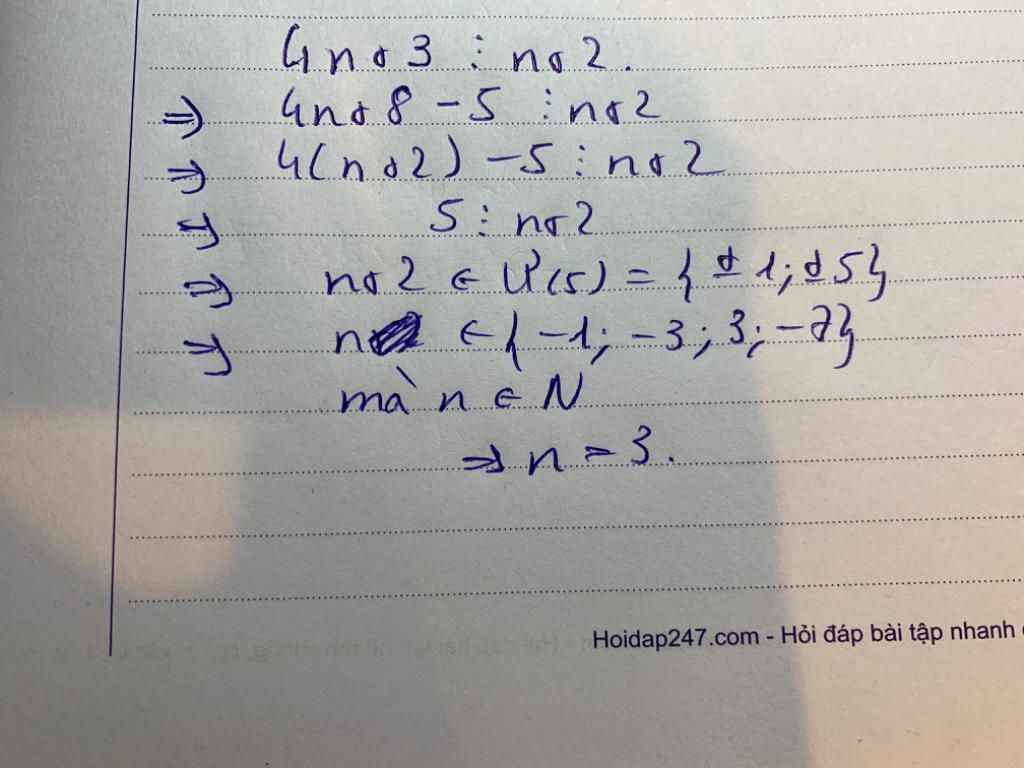 4n+3 ⋮ n+2.
⇒ 4n+8 -5 ⋮ n+2
⇒ 4(n+2) -5 ⋮ n+2
⇒ 5 ⋮ n+2
⇒ n+2 ∈ Ư(5) = { ±1; ±5}
⇒ n ∈ { -1; -3; 3; -7}
mà n ∈ N
⇒ n = 3.
Hoidap247.com - Hỏi đáp bài tập nhanh